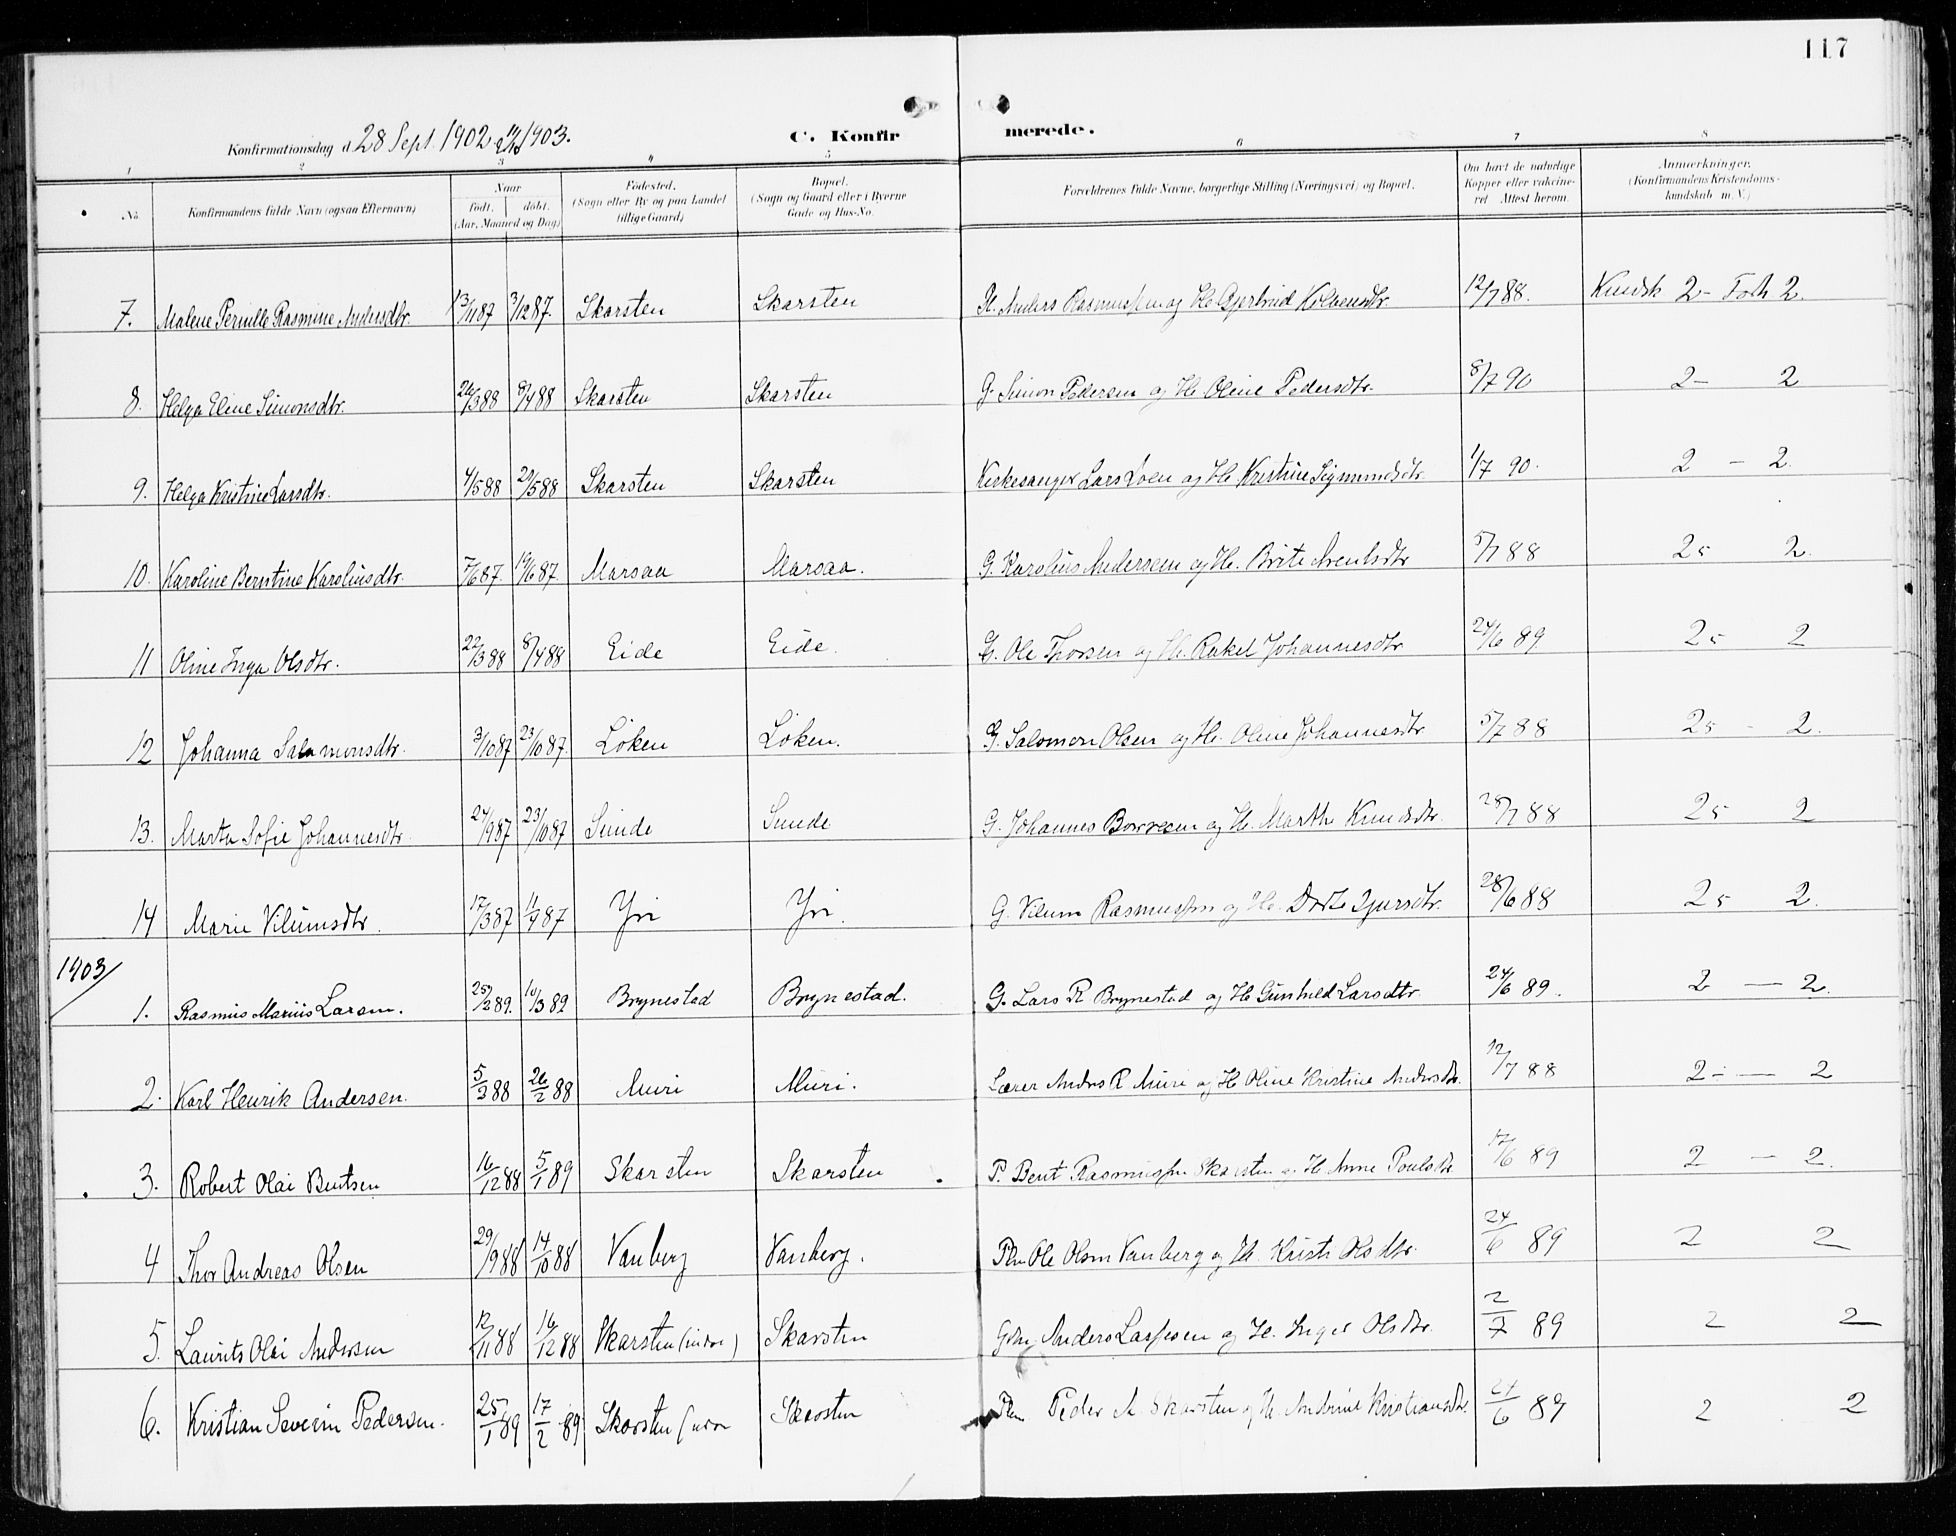 117
Konfirmationsdag d. 28 Sept. 1902 1903.
C. Konfirmerede.
1 2 3 4 5 6 7 8
No. Konfirmandens fulde Navn (ogsaa Efternavn) Naar født. døbt. (Aar, Maaned og Dag) Fødested. (Sogn eller By og paa Landet tillige Gaard) Bopæl. (Sogn og Gaard eller i Byerne Gade og Hus-No. Forældrenes fulde Navne, borgerlige Stilling (Næringsvei) og Bopæl. Om havt de naturlige Kopper eller vakcineret Attest herom. Anmærkninger. (Konfirmandens Kristendomskundskab m. V.)
7. Malene Pernille Rasmine Andersdtr. 13/11 87 3/12 87. Skarsten Skarsten Anders Rasmussen og H. Gjertrud 12/7 88. Kundsk 2 - Forh 2
8. Helga Eline Simonsdtr. 26/3 88 8/4 88 Skarsten Skarsten G. Simon Pedersen og H. Oline Pedersdtr. 8/7 90 2 - 2
9. Helga Kristine Larsdtr. 4/5 88 20/5 88 Skarsten Skarsten Kirkesanger Lars Loen og H. Kristine Sigmundsdtr. 1/7 90. 2 - 2.
10. Karoline Berntine Karoliusdtr. 7/6 87. 19/6 87 Marsaa Marsaa. G. Karolius Andersen og H. Brite Arentsdtr 5/7 88 2 2.
11 Oline Inga Olsdtr. 22/3 88 8/4 88 Eide Eide. G. Ole Thorsen og H. Rakel Johannesdtr 24/6 89 2 2
12 Johanna Salomonsdtr. 3/10 87 23/10 87. Löken Löken. G. Salomon Olsen og H. Oline Johannesdtr 5/7 88 2 - 2.
13. Marta Sofie Johannesdtr. 24/9 87 23/10 87 Sunde Sunde G. Johannes og H. Marthe Knudsdtr. 28/7 88 2 2
14 Marie Vilumsdtr. 17/3 87 11/4 87 Yri Yri. G. Vilum Rasmussen og H. Dorte 28/6 88 2 2.
1903/
1. Rasmus Marius Larsen. 25/2 89. 10/3 89 Brynestad Brynestad. G. Lars R Brynestad og H Gunhild Larsdtr. 24/6 89. 2 — 2.
2. Karl Henrik Andersen. 5/2 88 26/2 88 Muri Muri. Lærer Anders R Muri og H Oline Kristine Andersdtr. 12/7 88 2 — 2
3. Robert Olai Bentsen 16/12 88 5/1 89 Skarsten Skarsten P. Bent Rasmussen Skarsten og H Anne Poulsdtr 17/6 89 2 - 2.
4 Thor Andreas Olsen 29/9 88 14/10 88 Vanberg Vanberg. Ole Olsen Vanberg og H. Kristi Olsdtr. 24/6 89 2 2
5. Laurits Olai Andersen 12/11 88 16/12 88 Skarsten (indre) Skarsten Gdm Anders Lassesen og H. Inger Olsdtr. 2/7 89 2 2
6. Kristian Severin Pedersen. 25/1 89 17/2 89 Skarsten Skarsten Peder A. Skarsten og H. Andrine Kristiansdtr. 24/6 89 2 2